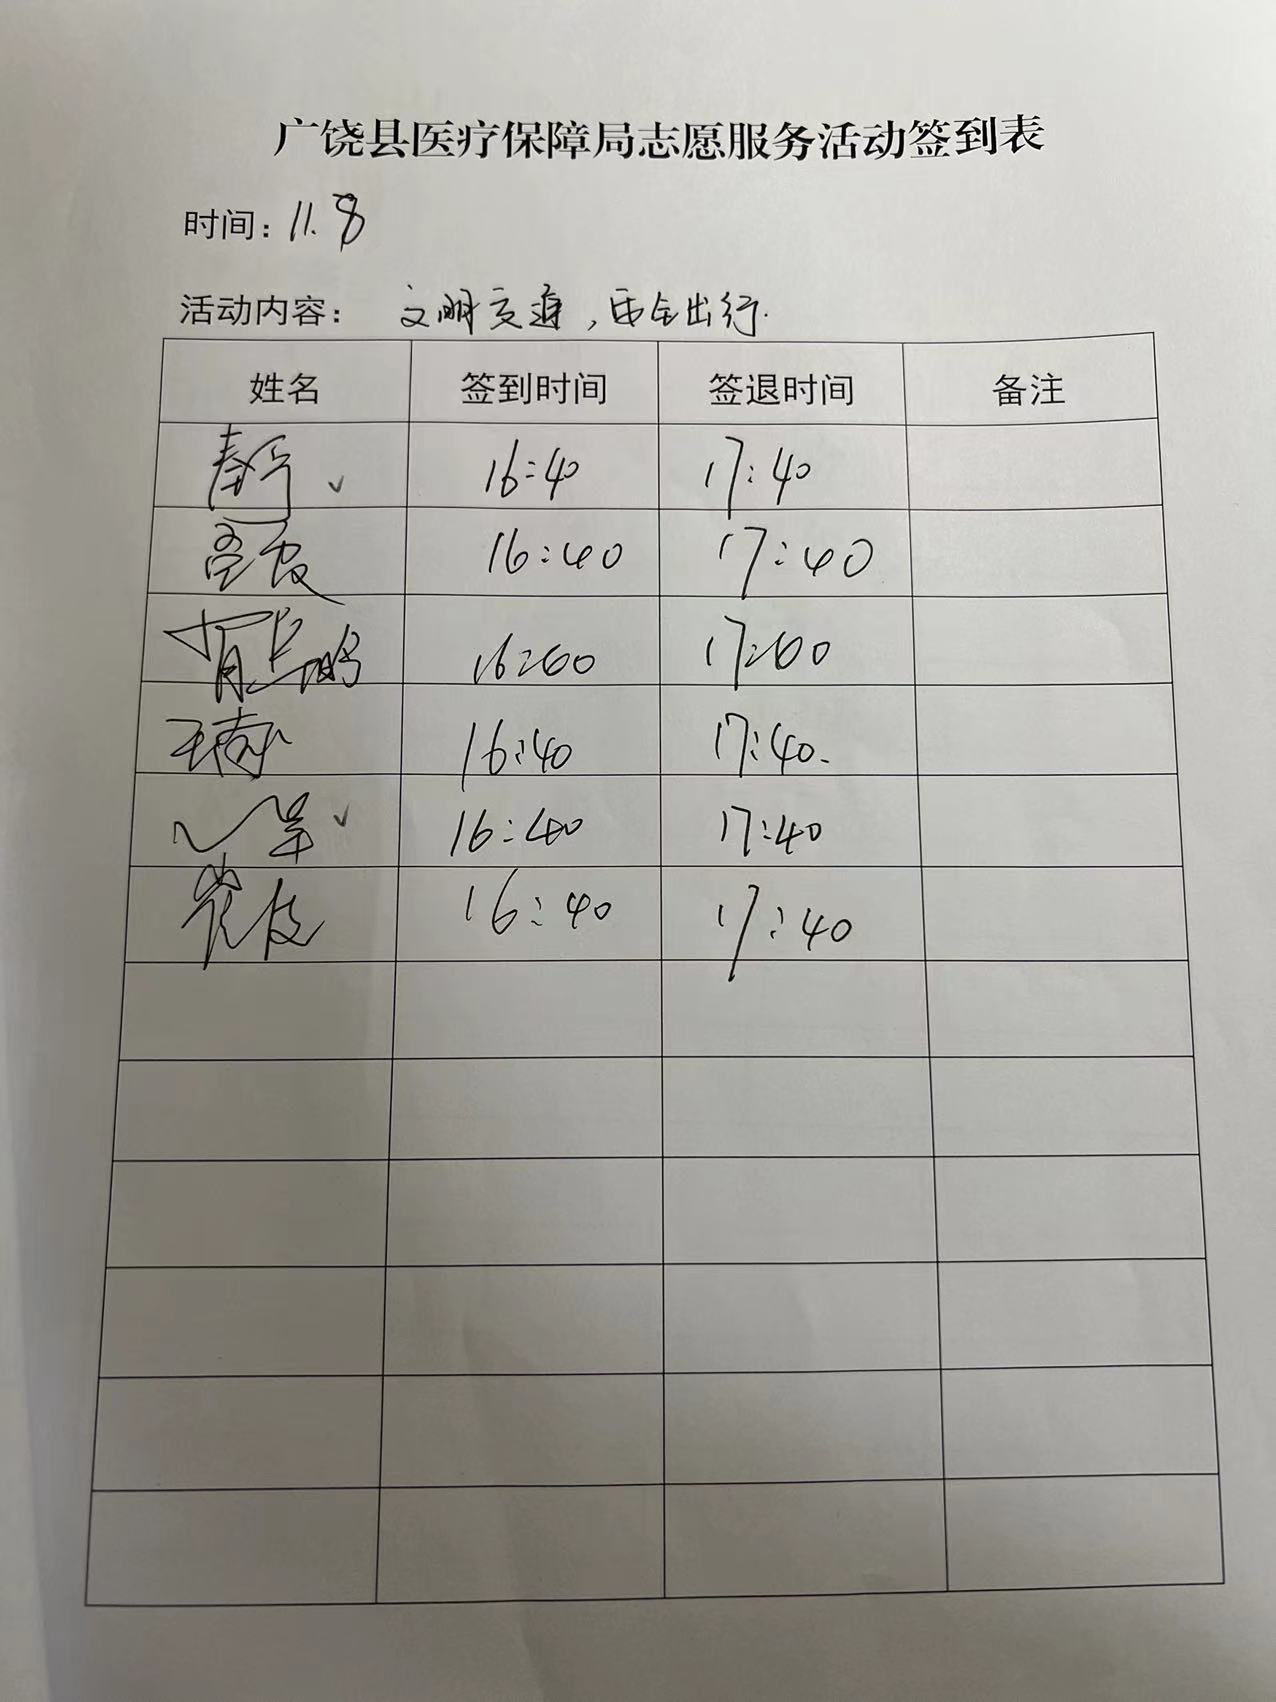 广饶县医疗保障局志愿服务活动签到表
时间：11.8
活动内容： 文明交通，安全出行.
姓名 签到时间 签退时间 备注
16:40 17:40
16:40 17:40
16:60 17:60
16:40 17:40.
16:40 17:40
16:40 17:40